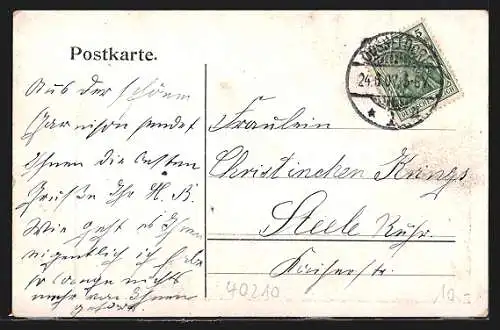 Postkarte.
Aus der schönen
Garnison sendet
Ihnen die besten
Grüße Ihr H. B.
Wie geht es Ihnen
eigentlich ich habe
so lange nichts
mehr von Ihnen
gehört.
5
DÜSSELDORF
24.6.07. 5-6N
* 1
DEUTSCHES REICH
Fräulein
Christinchen Krings
Steele Ruhr.
Kaiserstr.
40210
10.-